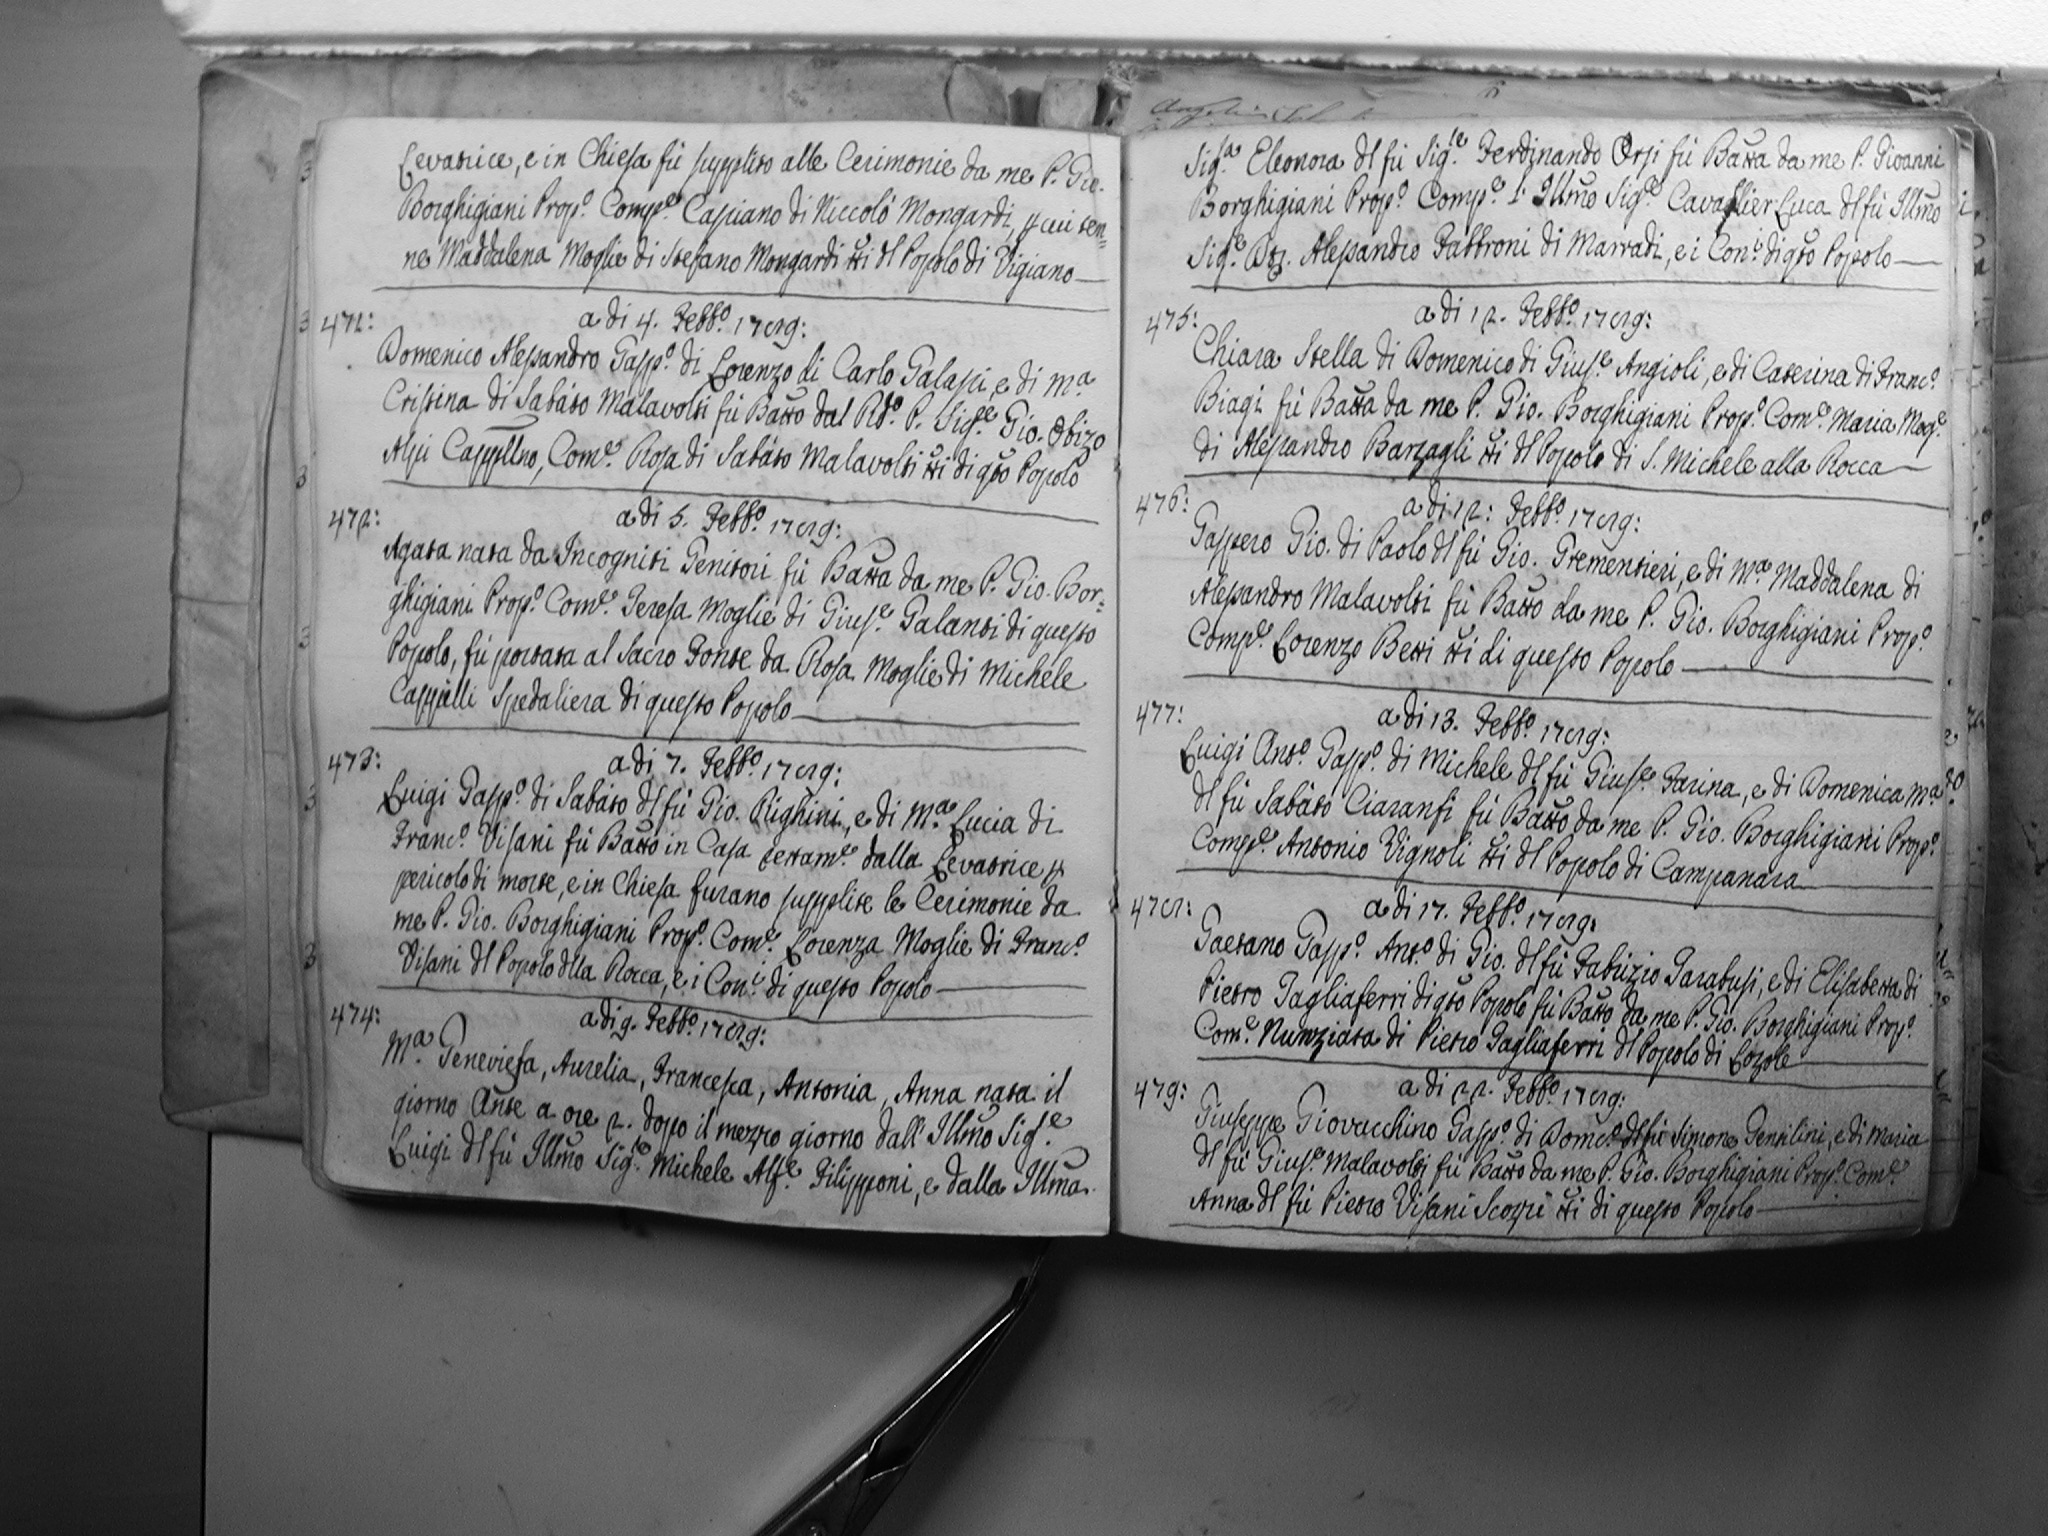 Levatrice, e in Chiesa fù supplito alle Cerimonie da me P. Gio.
Borghigiani Prop.º Comp.e Caspiano di Niccolò Mongardi, p cui ten=
ne Maddalena Moglie di Stefano Mongardi tti dl Popolo di Vigiano
471: a di 4. Febb.º 1789:
Domenico Alessandro Gasp.º di Lorenzo di Carlo Galassi, e di M.a
Cristina di Sabáto Malavolti fù Batto dal Rd.º P. Sig.e Gio. Obizo
Alpi Cappllno, Com.e Rosa di Sabáto Malavolti tti di qto Popolo
472: a di 5. Febb.º 1789:
Agata nata da Incogniti Genitori fù Batta da me P. Gio. Bor=
ghigiani Prop.º Com.e Teresa Moglie di Gius.e Galanti di questo
Popolo, fù portata al Sacro Fonte da Rosa Moglie di Michele
Cappelli Spedaliera di questo Popolo
473: a di 7. Febb.º 1789:
Luigi Gasp.º di Sabáto dl fù Gio. Righini, e di M.a Lucia di
Franc.º Visani fù Batto in Casa dalla Levatrice p
pericolo di morte, e in Chiesa furano supplite le Cerimonie da
me P. Gio. Borghigiani Prop.º Com.e Lorenza Moglie di Franc.º
Visani dl Popolo dlla Rocca, e i Con.i di questo Popolo
474: a di 9. Febb.º 1789:
M.a Geneviefa, Aurelia, Francesca, Antonia, Anna nata il
giorno Ante a ore 2. dopo il mezzo giorno dall' Illmo Sig.e
Luigi dl fù Illmo Sig.e Michele Alf.e Filipponi, e dalla Illma
Sig.a Eleonora dl fù Sig.e Ferdinando Orsi fù Batta da me P. Giovanni
Borghigiani Prop.º Comp.e l' Illmo Sig.e Cavallier Luca dl fù Illmo
Sig.e Alessandro Fabbroni di Marradi, e i Con.i di qto Popolo
475: a di 12. Febb.º 1789:
Chiara Stella di Domenico di Gius.e Angioli, e di Caterina di Franc.º
Biagi fù Batta da me P. Gio. Borghigiani Prop.º Com.e Maria Mog.e
di Alessandro Barzagli tti dl Popolo di S. Michele alla Rocca
476: a di 12: Febb.º 1789:
Gaspero Gio. di Paolo dl fù Gio. Grementieri, e di M.a Maddalena di
Alessandro Malavolti fù Batto da me P. Gio. Borghigiani Prop.º
Comp.e Lorenzo Betti tti di questo Popolo
477: a di 13. Febb.º 1789:
Luigi Ant.º Gasp.º di Michele dl fù Gius.e Farina, e di Domenica M.a
dl fù Sabáto Ciaranfi fù Batto da me P. Gio. Borghigiani Prop.º
Comp.e Antonio Vignoli tti dl Popolo di Campanara
478: a di 17. Febb.º 1789:
Gaetano Gasp.º Ant.º di Gio. dl fù Fabrizio Tarabusi, e di Elisabetta di
Pietro Tagliaferri di qto Popolo fù Batto da me P. Gio. Borghigiani Prop.º
Com.e Nunziata di Pietro Tagliaferri dl Popolo di Lozole
479: a di 22. Febb.º 1789:
Giuseppe Giovacchino Gasp.º di Domc.º dl fù Simone Gentilini, e di Maria
dl fù Gius.e Malavolti fù Batto da me P. Gio. Borghigiani Prop.º Com.e
Anna dl fù Pietro Visani Scozzi tti di questo Popolo